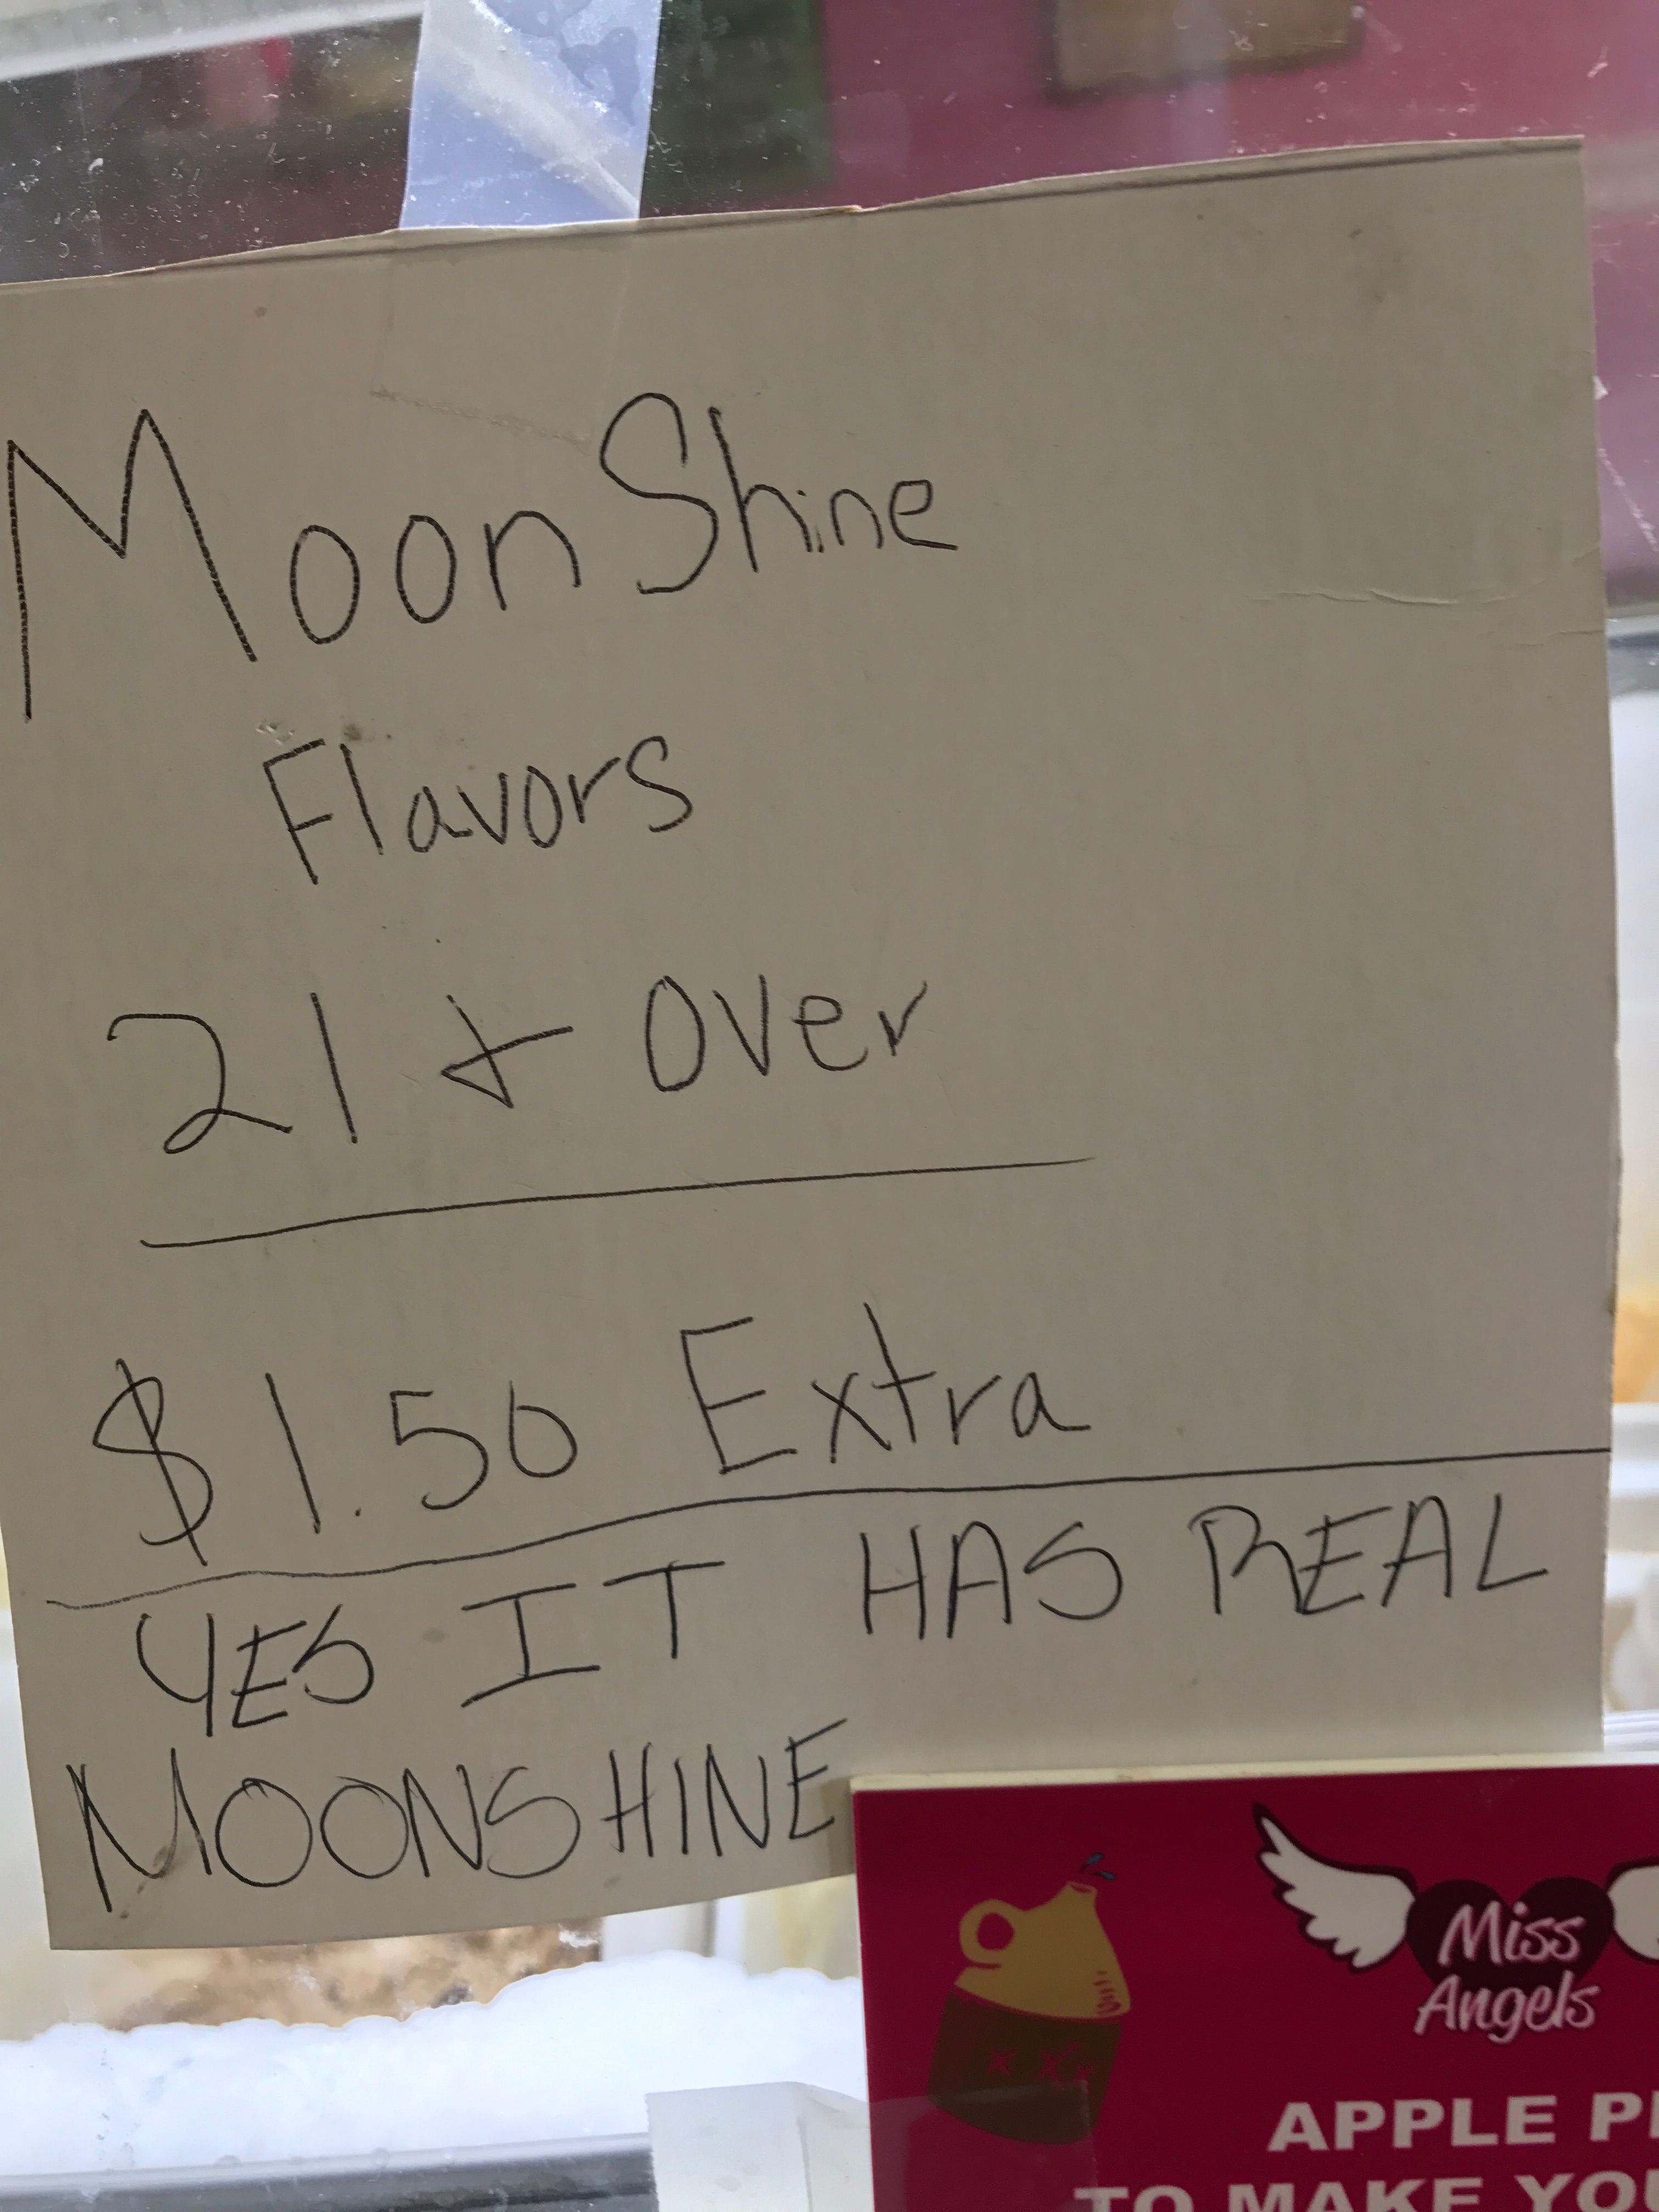 MoonShine
Flavors
21 + Over
$1.50 Extra
YES IT HAS REAL
MOONSHINE
Miss
Angels
APPLE
TO MAKE